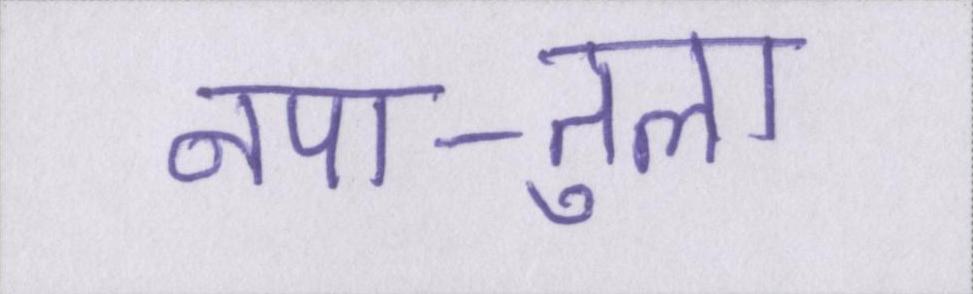 नपा-तुला